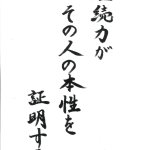 続力が
その人の本性を
証明す